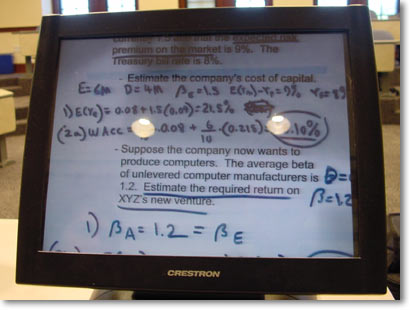 currently 1.5 and that the expected risk
premium on the market is 9%. The
Treasury bill rate is 8%.
- Estimate the company's cost of capital.
E=6M D=4M βE=1.5 E(rm)-rF=9% rF=8%
1) E(rE)=0.08+1.5(0.09)=21.5%
(2a) WACC 0.08+ 6/10 (0.215) .10%
- Suppose the company now wants to
produce computers. The average beta
of unlevered computer manufacturers is
1.2. Estimate the required return on
XYZ's new venture.
β=1.2
1) βA=1.2=βE
CRESTRON